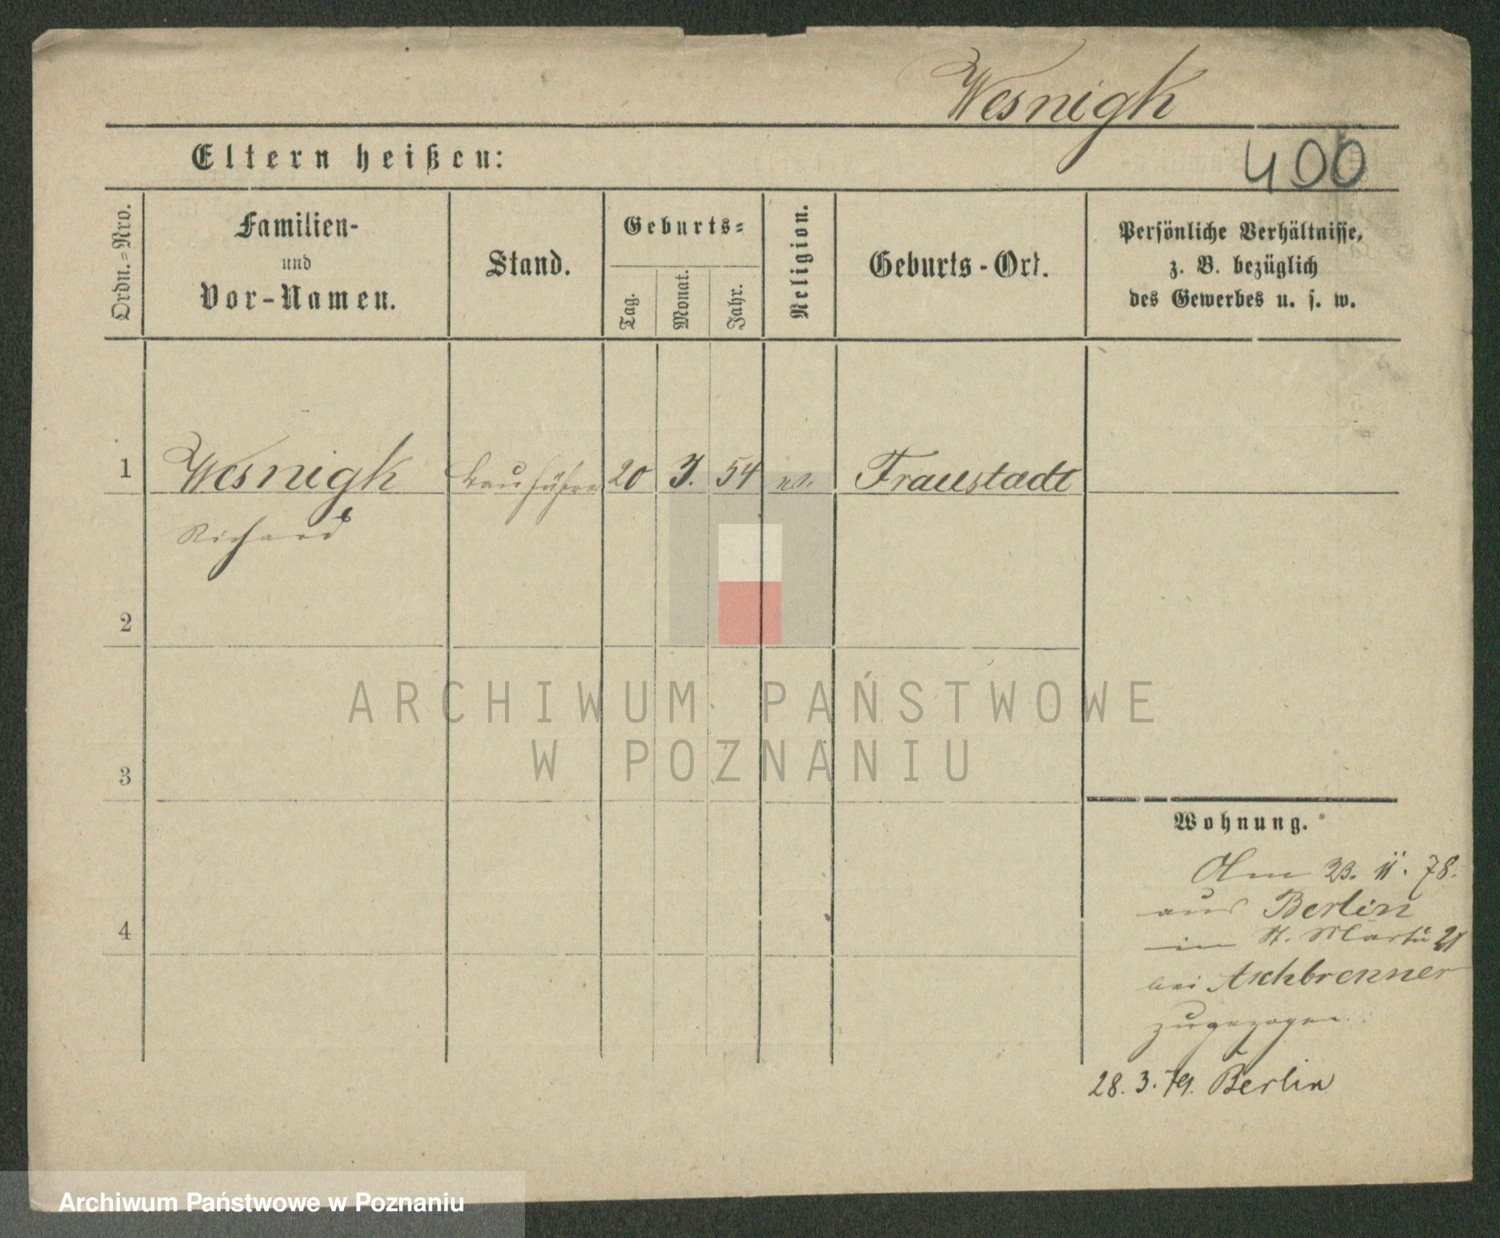 Wesnigk
Eltern heißen:
400
Ordn.-Nro.
Familien-
und
Vor-Namen.
Stand.
Geburts-
Tag.
Monat.
Jahr.
Religion.
Geburts-Ort.
Persönliche Verhältnisse,
z. B. bezüglich
des Gewerbes u. s. w.
1
Wesnigk
Bauführer
20
3.
54
ev.
Fraustadt
Richard
2
3
4
ARCHIWUM PAŃSTWOWE
W POZNANIU
Wohnung.
Am 23. 11. 78.
aus Berlin
in St. Martin 21
bei Aschbrenner
zugezogen.
28. 3. 79. Berlin
Archiwum Państwowe w Poznaniu